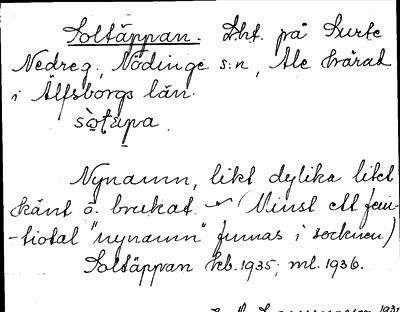 Soltäppan. Lht. på Surte
Nedreg., Nödinge s:n, Ale härad
i Älfsborgs län.
sòtäpa.
Nynamn, likt dylika likt
känt o. brukat. (Minst ett fem-
-tiotal "nynamn" finnas i socknen)
Soltäppan kb. 1935; ml. 1936.